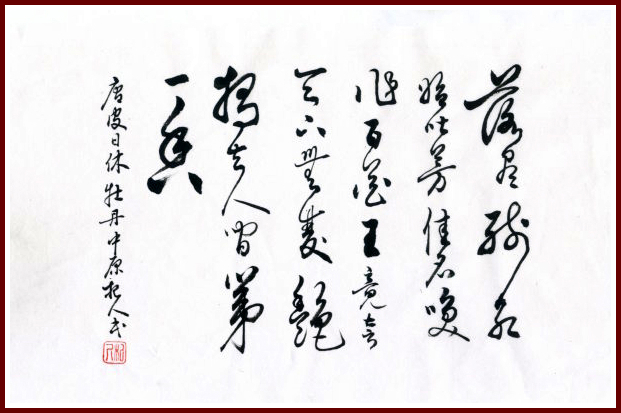 落尽残红
始吐芳佳名唤
作百花王竟夸
天下無雙艷
独立人间第
一香
唐皮日休牡丹中原人